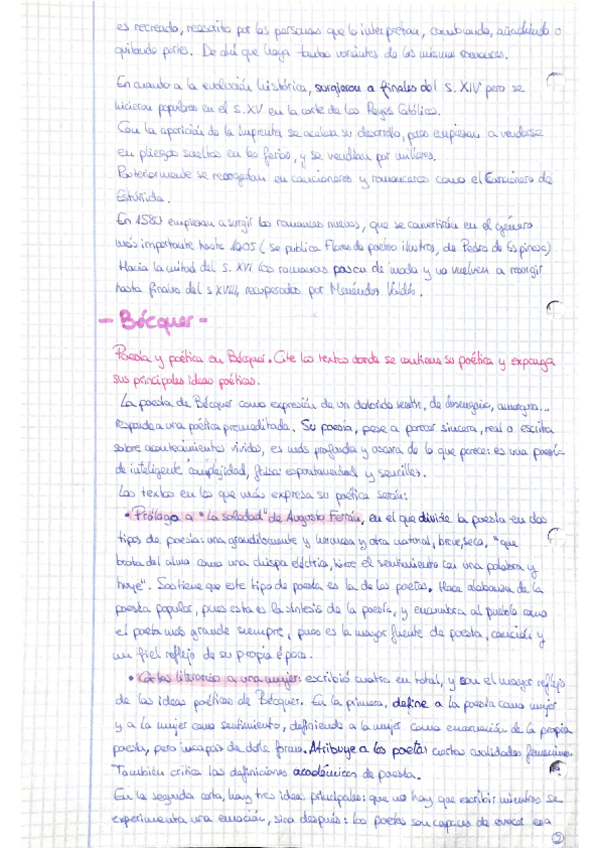 es recreado, reescrito por las personas que lo interpretan, cambiando, añadiendo o
quitando partes. De ahí que haya tantas variantes de los mismos romances.
En cuanto a la evolución histórica, surgieron a finales del s. XIV pero se
hicieron populares en el s. XV en la corte de los Reyes Católicos.
Con la aparición de la imprenta se acelera su desarrollo, pues empiezan a venderse
en pliegos sueltos en las ferias, y se vendían por millares.
Posteriormente se recogerían en cancioneros y romanceros como el Cancionero de
Estúñida.
En 1580 empiezan a surgir los romances nuevos, que se convertirán en el género
más importante hasta 1605 (se publica Flores de poetas ilustres, de Pedro de Espinosa)
Hacia la mitad del s. XVI los romances pasan de moda y no vuelven a resurgir
hasta finales del s XVIII, recuperados por Menéndez Valdés.
- Bécquer -
Poesía y poética en Bécquer. Cite los textos donde se contiene su poética y exponga
sus principales ideas poéticas.
La poesía de Bécquer como expresión de un dolorido sentir, de desengaño, amargura...
responde a una poética premeditada. Su poesía, pese a parecer sincera, real o escrita
sobre acontecimientos vividos, es más profunda y oscura de lo que parece: es una poesía
de inteligente complejidad, falsa espontaneidad y sencillez.
Los textos en los que más expresa su poética serán:
• Prólogo a "La soledad" de Augusto Ferrán, en el que divide la poesía en dos
tipos de poesía: una grandilocuente y hermosa y otra natural, breve, seca, "que
brota del alma como una chispa eléctrica, hiere el sentimiento con una palabra y
huye". Sostiene que este tipo de poesía es la de los poetas. Hace alabanza de la
poesía popular, pues esta es la síntesis de la poesía, y encumbra al pueblo como
el poeta más grande siempre, pues es la mayor fuente de poesía, canción y
un fiel reflejo de su propia época.
• Cartas literarias a una mujer: escribió cuatro en total, y son el mayor reflejo
de las ideas poéticas de Bécquer. En la primera, define a la poesía como mujer
y a la mujer como sentimiento, definiendo a la mujer como encarnación de la propia
poesía, pero incapaz de darle forma. Atribuye a los poetas ciertas cualidades femeninas.
También critica las definiciones académicas de poesía.
En la segunda carta, hay tres ideas principales: que no hay que escribir mientras se
experimenta una emoción, sino después: los poetas son capaces de evocar esa
2